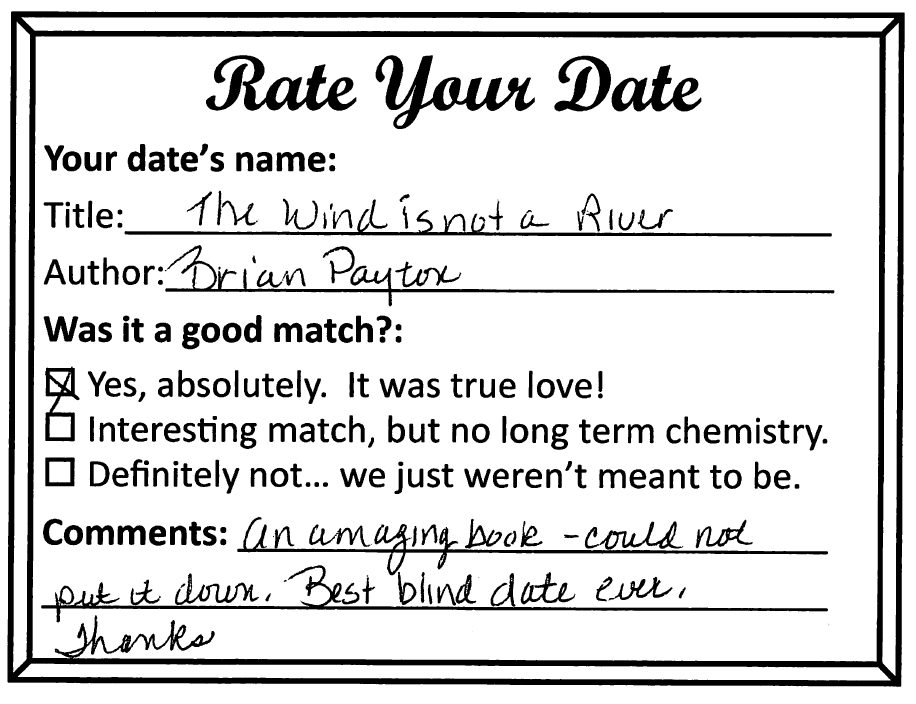 Rate Your Date
Your date's name:
Title: The Wind is not a River
Author: Brian Payton
Was it a good match?:
Yes, absolutely. It was true love!
Interesting match, but no long term chemistry.
Definitely not... we just weren't meant to be.
Comments: An amazing book - could not
put it down. Best blind date ever.
Thanks